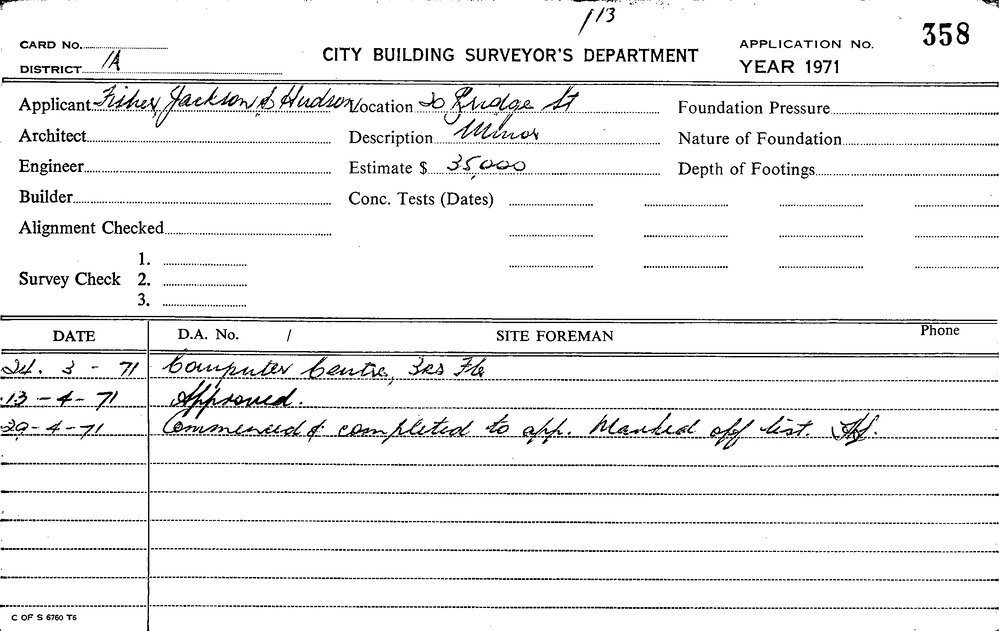 113
CARD No.
CITY BUILDING SURVEYOR'S DEPARTMENT
APPLICATION No. 358
DISTRICT 1A
YEAR 1971
Applicant Fisher, Jackson & Hudson Location 20 Bridge St Foundation Pressure
Architect Description Minor Nature of Foundation
Engineer Estimate $ 35,000 Depth of Footings
Builder Conc. Tests (Dates)
Alignment Checked
1.
Survey Check 2.
3.
DATE D.A. No. / SITE FOREMAN Phone
24. 3 - 71 Computer Centre, 3rd Flr
13 - 4 - 71 Approved.
29 - 4 - 71 Commenced & completed to app. Marked off list.
C OF S 6760 T6